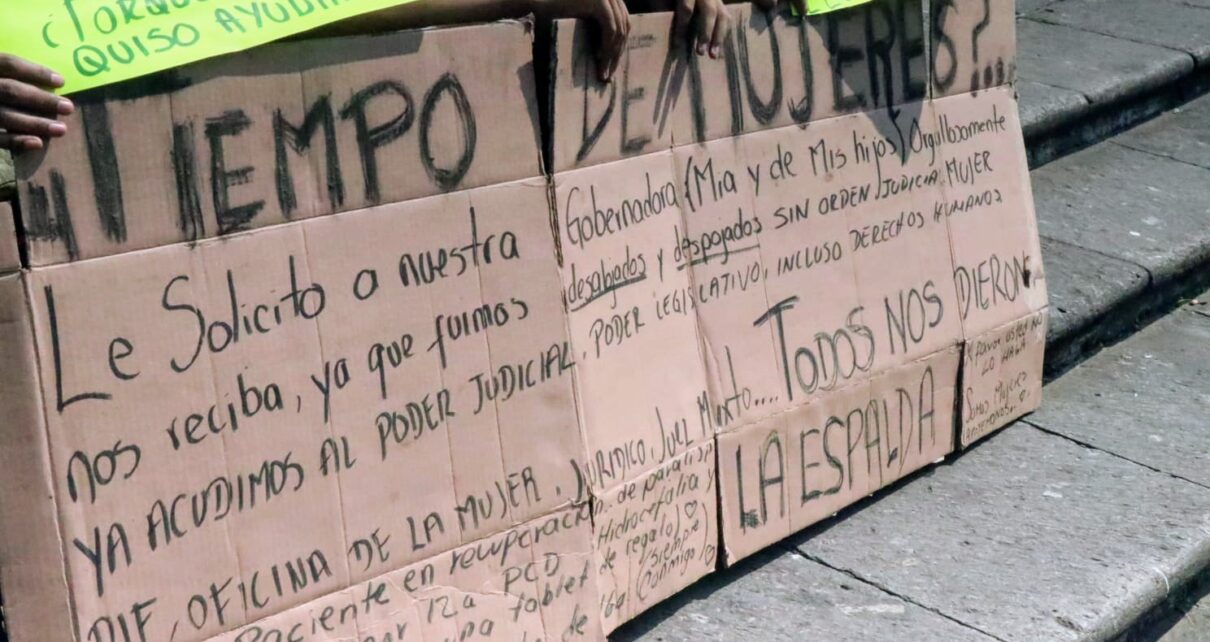 ¿TORNO
QUISO AYUDA
¿TIEMPO DE MUJERES?...
Le Solicito a nuestra Gobernadora (Mia y de Mis hijos) Orgullosamente MUJER
nos reciba, ya que fuimos desalojados y despojados SIN ORDEN JUDICIAL.
YA ACUDIMOS AL PODER JUDICIAL, PODER LEGISLATIVO, INCLUSO DERECHOS HUMANOS
DIF, OFICINA DE LA MUJER, JURIDICO, JUEZ Mixto.... TODOS NOS DIERON
LA ESPALDA
X favor usted NO
LO HAGA
Somos Mujeres
Paciente en recuperación de
12a PCD Hidrocefalia y
una tablet de regalo) ♡
de 16a (siempre
Conmigo) ♡